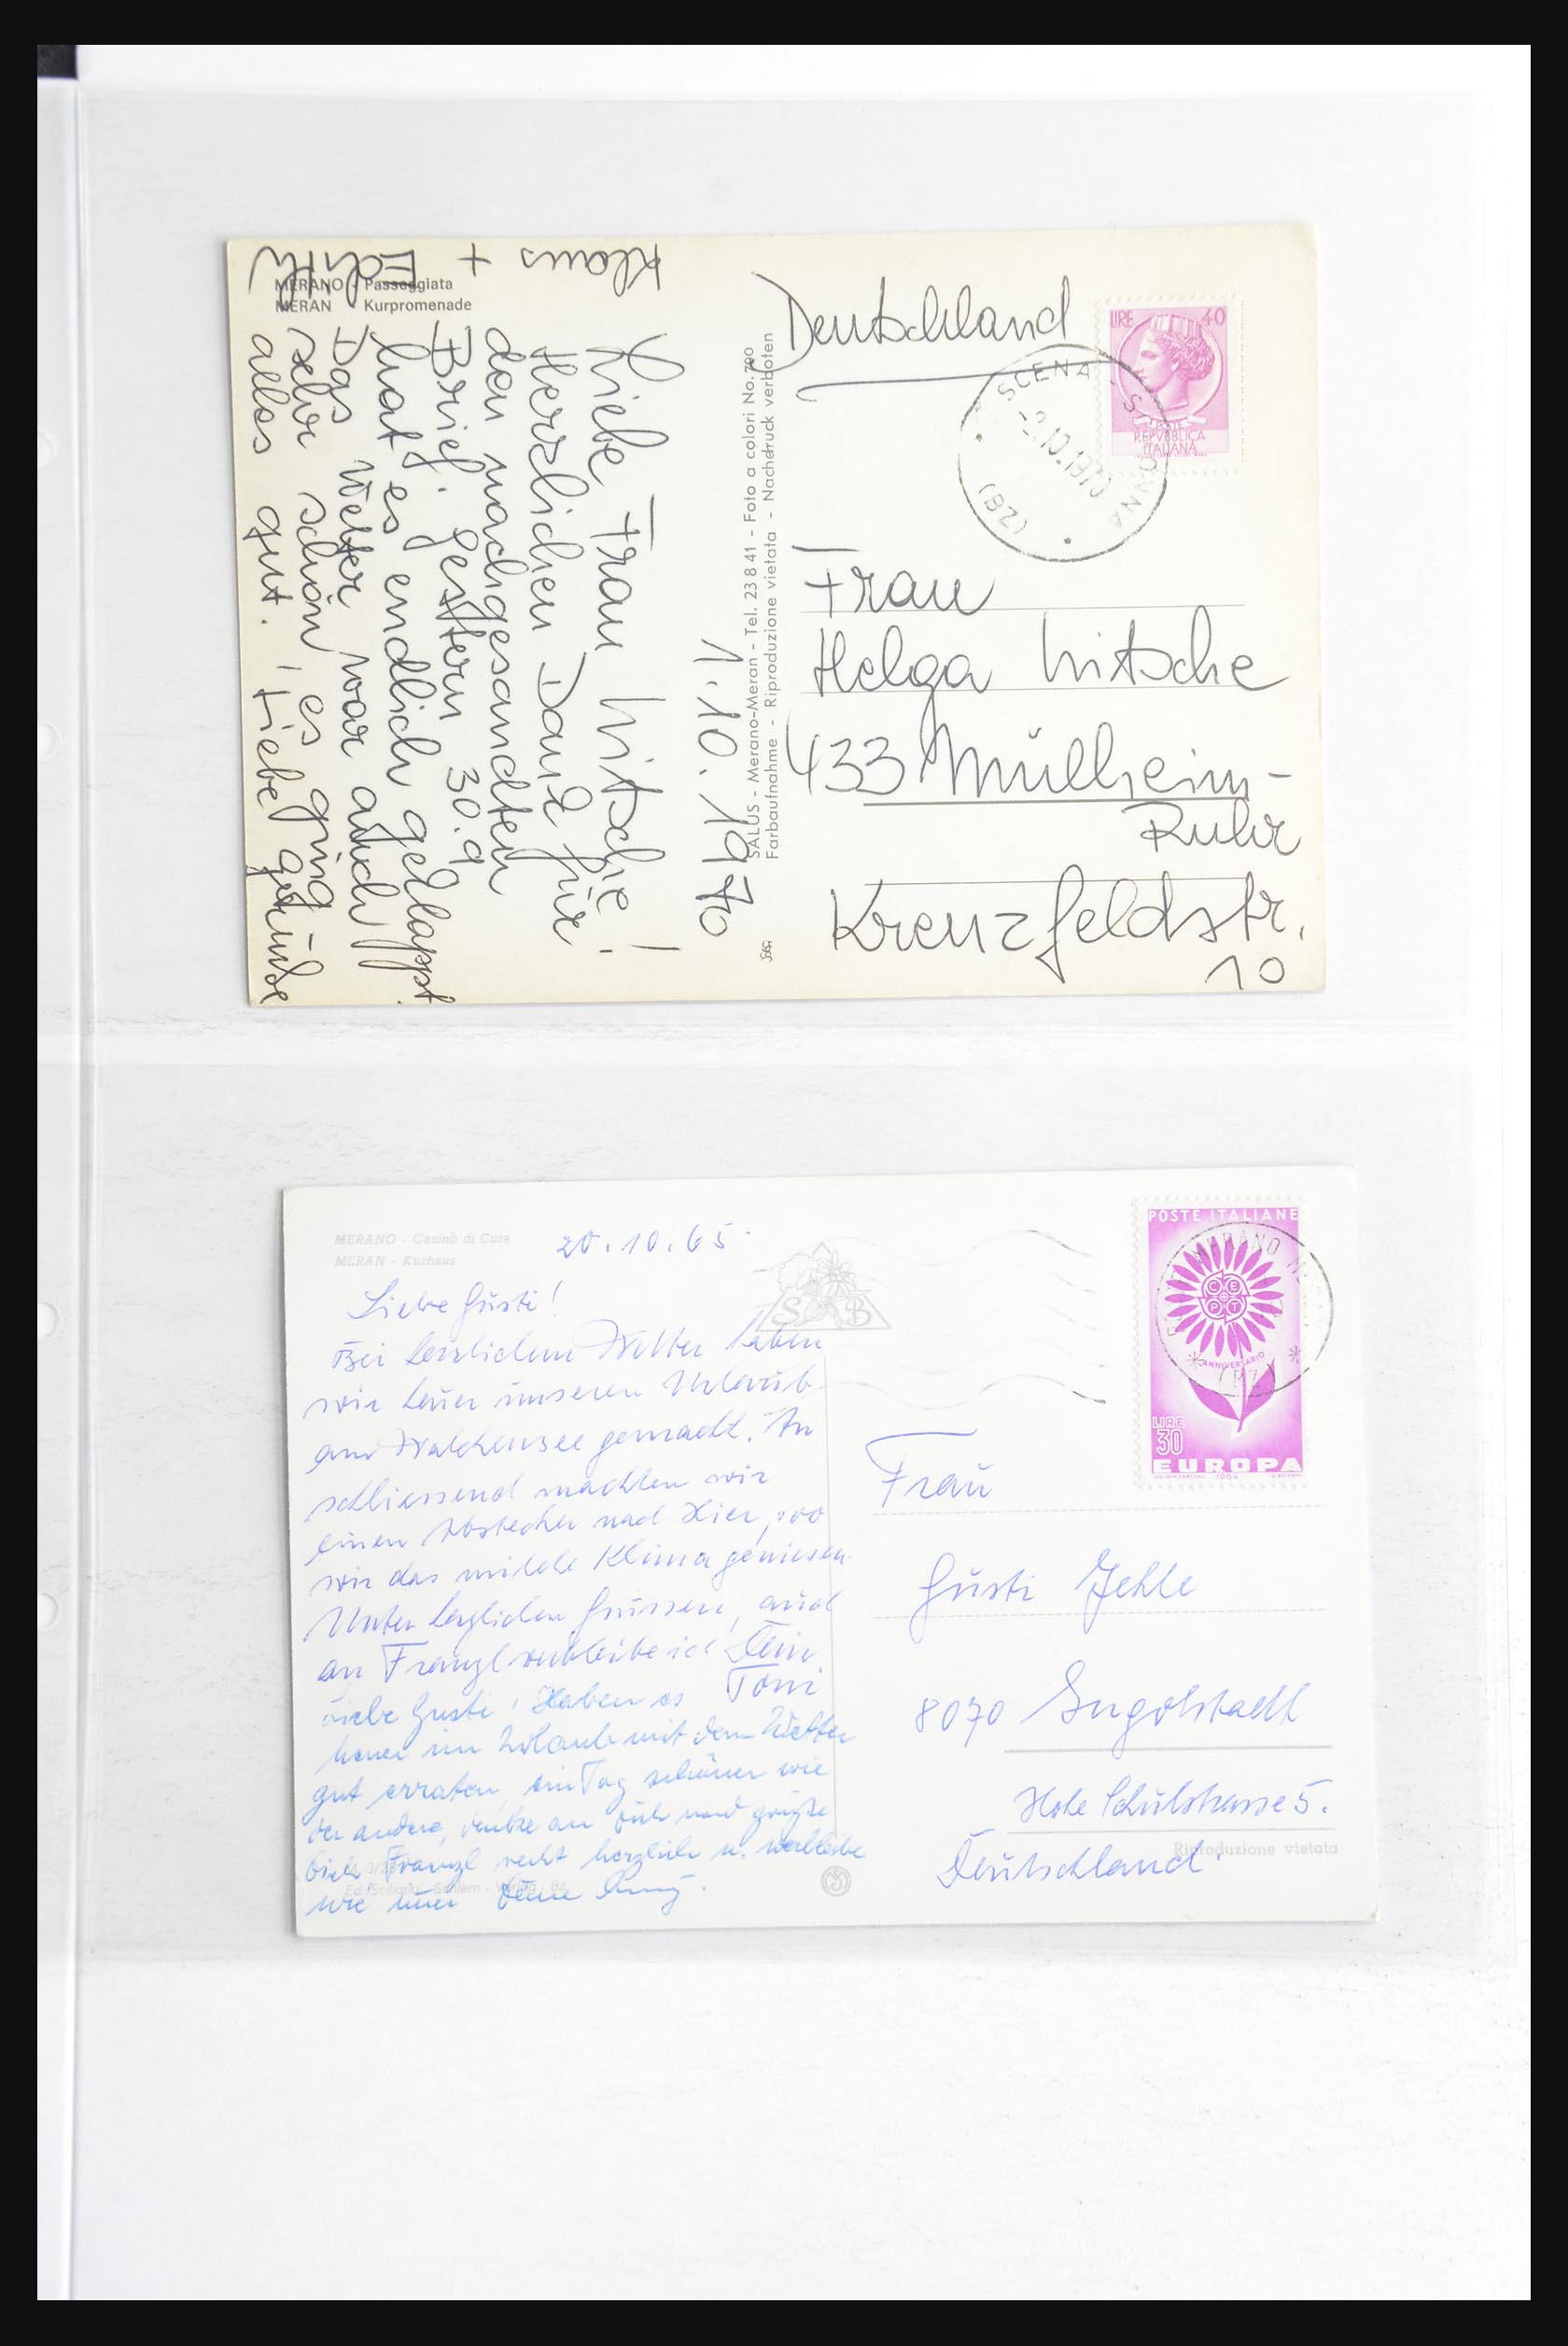 MERANO - Passeggiata
MERAN Kurpromenade
1.10.1970
Liebe Frau Nitsche!
Herzlichen Dank für
den nachgesandten
Brief. Gestern 30.9
hat es endlich geklappt.
Das Wetter war auch
sehr schön, es ging
alles gut. Liebe Grüße
Klaus + Edith
SALUS - Merano-Meran - Tel. 23 8 41 - Foto a colori No. 790
Farbaufnahme - Riproduzione vietata - Nachdruck verboten
Deutschland
LIRE 40
POSTE
REPVBBLICA
ITALIANA
SCENA - SCHENNA
-2.10.1970
(BZ)
Frau
Helga Nitsche
433 Mülheim-
Ruhr
Kreuzfeldstr.
10
MERANO - Casinò di Cura
MERAN - Kurhaus
20.10.65.
Liebe Gusti!
Bei herrlichem Wetter haben
wir heuer unseren Urlaub
am Walchensee gemacht. An
schliessend machten wir
einen Abstecher nach Hier, wo
wir das milde Klima geniesen.
Unter herzlichen Grüssen, auch
an Franzl verbleibe ich Dein
Toni
Liebe Gusti! Haben es
heuer im Urlaub mit dem Wetter
gut erraten, ein Tag schöner wie
der andere, denke an Dich und grüße
Dich Franzl recht herzlich u. verbleibe
wie immer Deine
SAB
POSTE ITALIANE
CEPT
ANNIVERSARIO
LIRE
30
EUROPA
1964
MERANO
Frau
Gusti Jehle
8070 Ingolstadt
Hohe Schulstrasse 5.
Deutschland
Riproduzione vietata